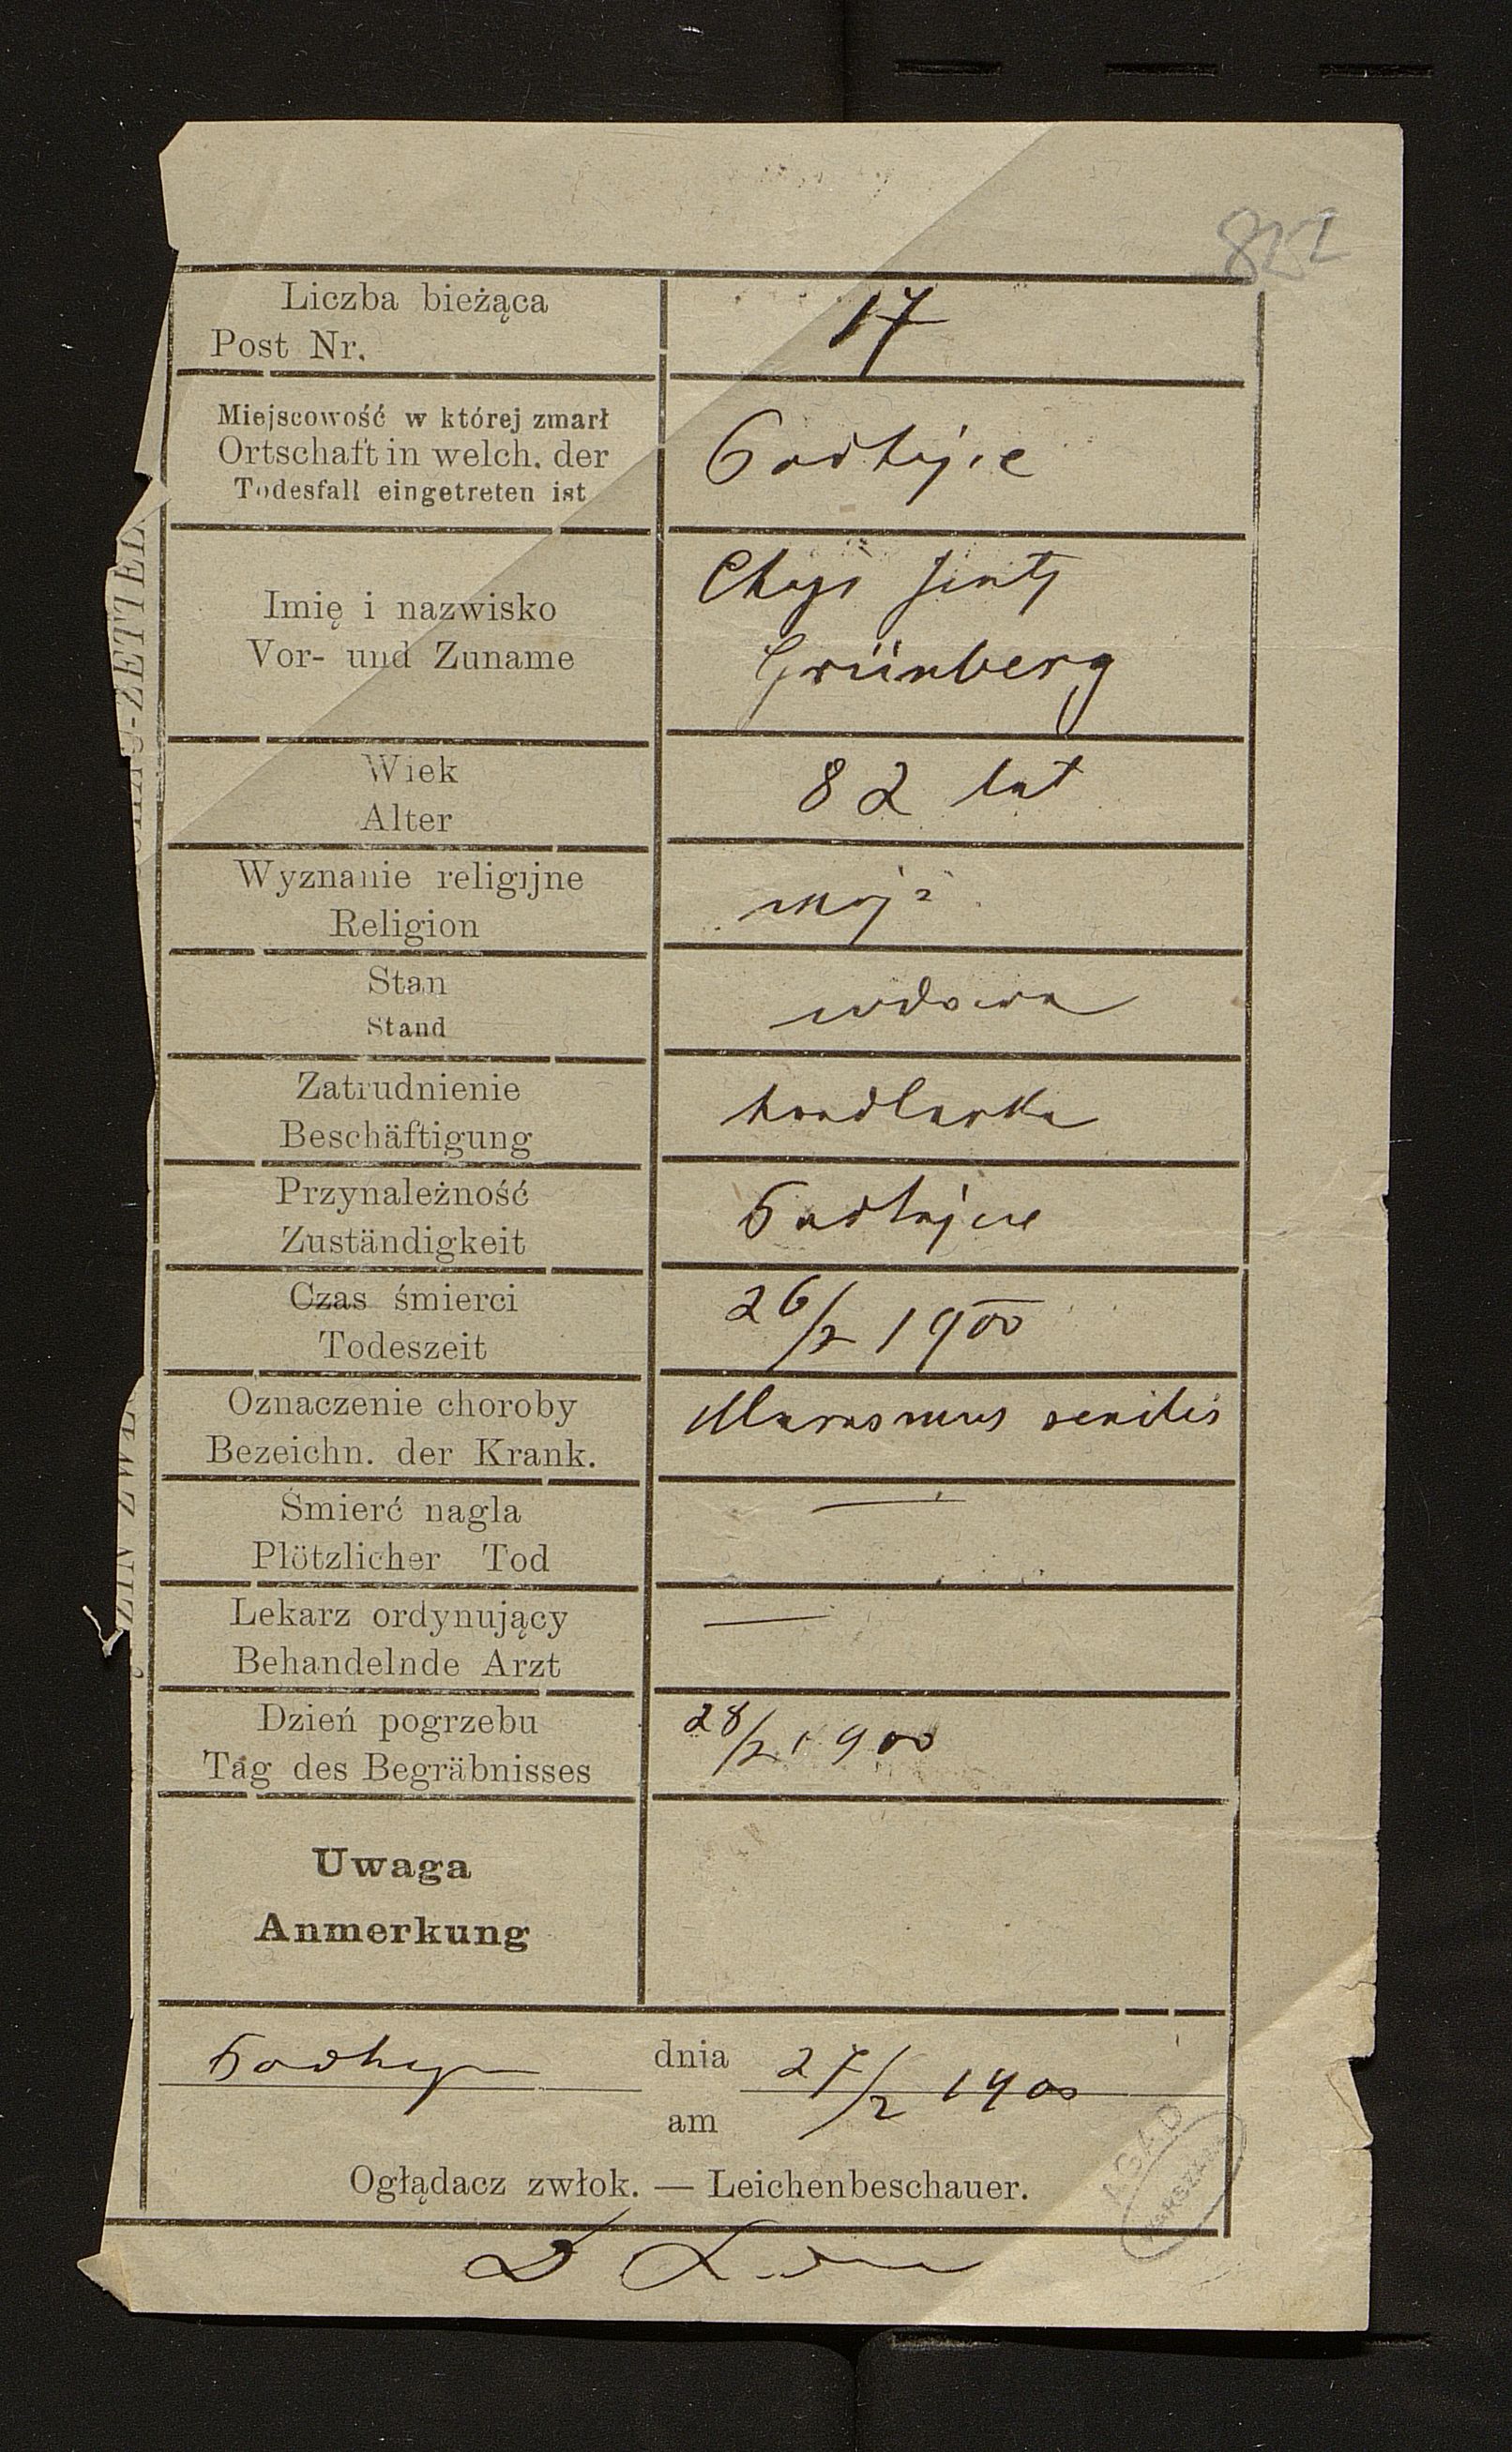 822
Liczba bieżąca
Post Nr.
17
Miejscowość w której zmarł
Ortschaft in welch. der
Todesfall eingetreten ist
Podhajce
Imię i nazwisko
Vor- und Zuname
Chaje
Grünberg
Wiek
Alter
82 lat
Wyznanie religijne
Religion
mojż
Stan
Stand
wdowa
Zatrudnienie
Beschäftigung
handlarka
Przynależność
Zuständigkeit
Podhajce
Czas śmierci
Todeszeit
26/2 1900
Oznaczenie choroby
Bezeichn. der Krank.
Marasmus senilis
Śmierć nagla
Plötzlicher Tod
—
Lekarz ordynujący
Behandelnde Arzt
—
Dzień pogrzebu
Tag des Begräbnisses
28/2 1900
Uwaga
Anmerkung
Podhajce dnia 27/2 1900
am
Oglądacz zwłok. — Leichenbeschauer.
AGAD
WARSZAWA
-ZETTEL